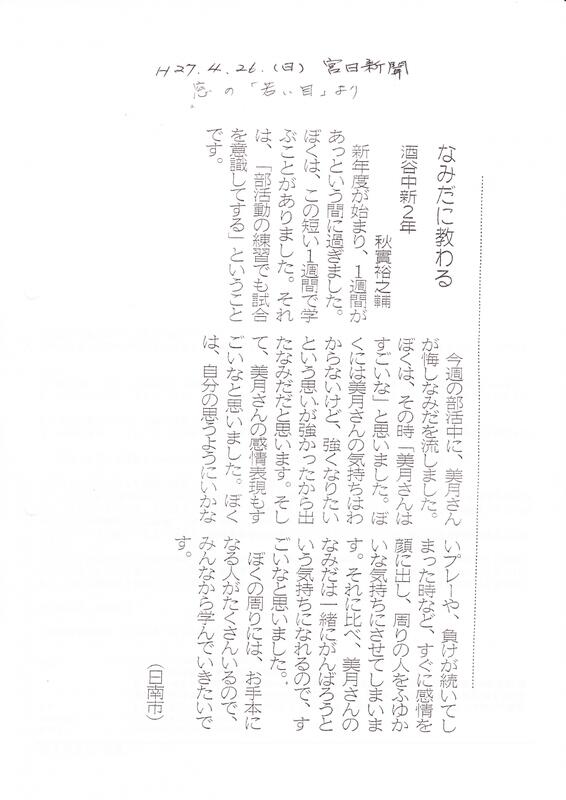 H27.4.26.(日) 宮日新聞
窓の「若い目」より
なみだに教わる
酒谷中新2年
秋實裕之輔
新年度が始まり、1週間が
あっという間に過ぎました。
ぼくは、この短い1週間で学
ぶことがありました。それ
は、「部活動の練習でも試合
を意識してする」ということ
です。
今週の部活中に、美月さん
が悔しなみだを流しました。
ぼくは、その時「美月さんは
すごいな」と思いました。ぼ
くには美月さんの気持ちはわ
からないけど、強くなりたい
という思いが強かったから出
たなみだだと思います。そし
て、美月さんの感情表現もす
ごいなと思いました。ぼく
は、自分の思うようにいかな
いプレーや、負けが続いてし
まった時など、すぐに感情を
顔に出し、周りの人をふゆか
いな気持ちにさせてしまいま
す。それに比べ、美月さんの
なみだは一緒にがんばろうと
いう気持ちになれるので、す
ごいなと思いました。
ぼくの周りには、お手本に
なる人がたくさんいるので、
みんなから学んでいきたいで
す。
(日南市)